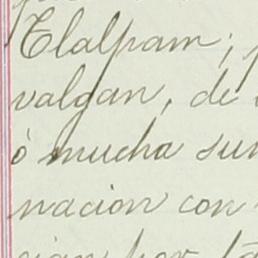 Tlalpam;
valgan, de
ó mucha
nacion con